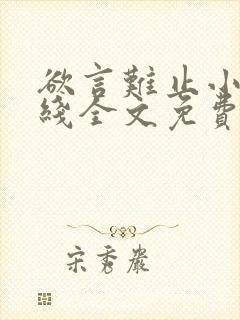 欲言難止小
綫全文免費
宋秀巖